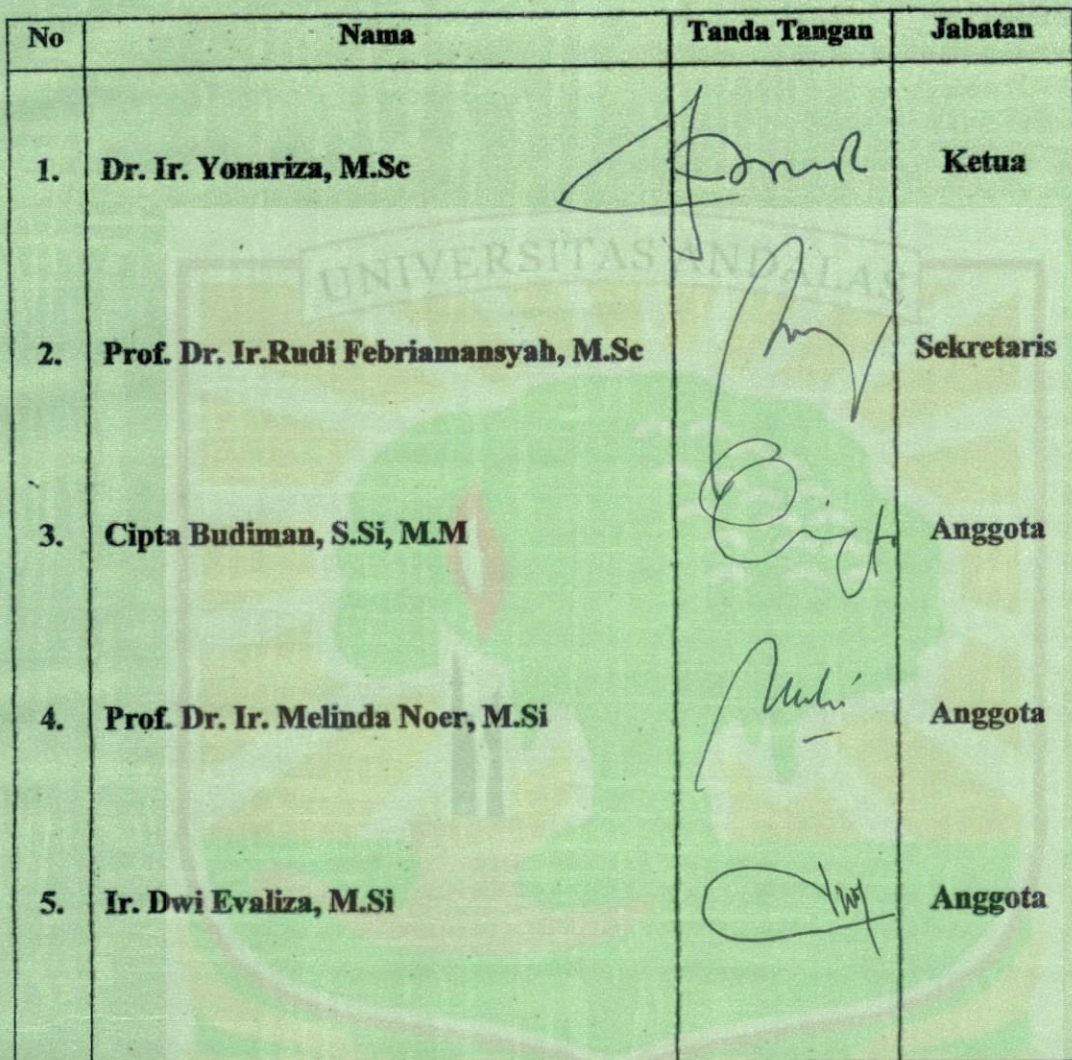 No Nama Tanda Tangan Jabatan
1. Dr. Ir. Yonariza, M.Sc Ketua
UNIVERSITAS ANDALAS
2. Prof. Dr. Ir.Rudi Febriamansyah, M.Sc Sekretaris
3. Cipta Budiman, S.Si, M.M Anggota
4. Prof. Dr. Ir. Melinda Noer, M.Si Anggota
5. Ir. Dwi Evaliza, M.Si Anggota